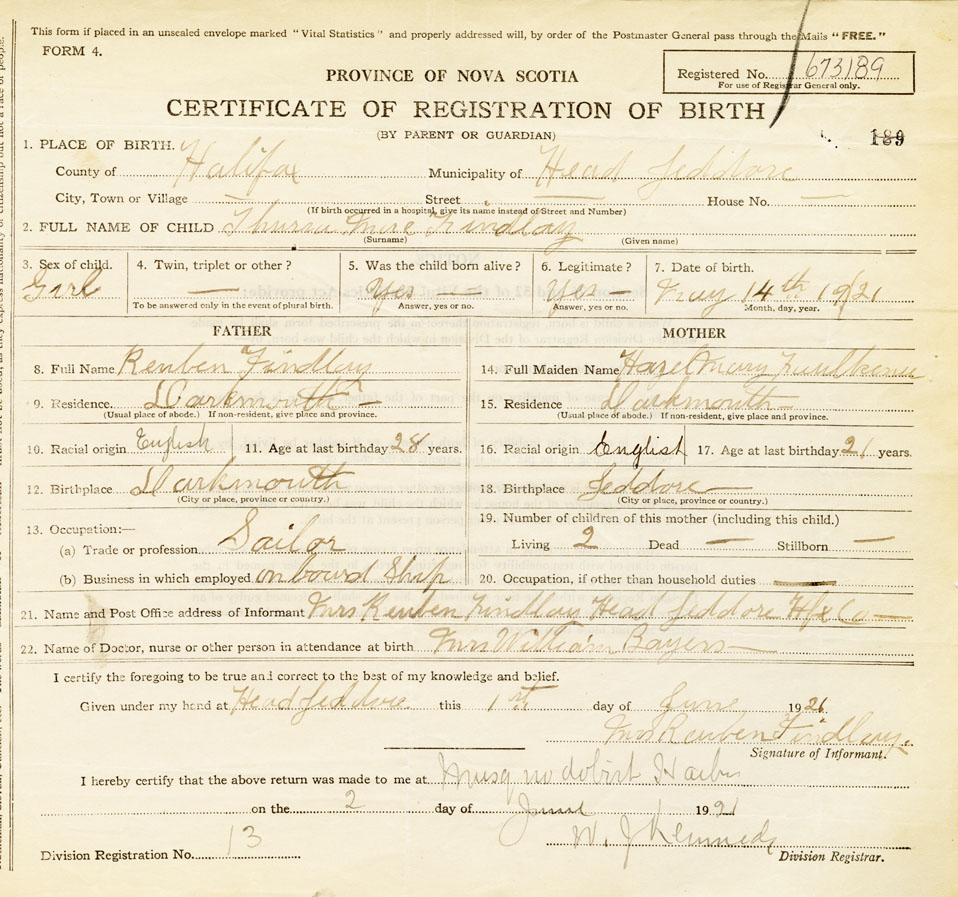 This form if placed in an unsealed envelope marked "Vital Statistics" and properly addressed will, by order of the Postmaster General pass through the Mails "FREE."
FORM 4.
PROVINCE OF NOVA SCOTIA
Registered No. 673189
For use of Registrar General only.
CERTIFICATE OF REGISTRATION OF BIRTH
(BY PARENT OR GUARDIAN)
189
1. PLACE OF BIRTH.
County of Halifax Municipality of Head Jeddore
City, Town or Village — Street — House No. —
(If birth occurred in a hospital, give its name instead of Street and Number)
2. FULL NAME OF CHILD Findlay
(Surname) (Given name)
3. Sex of child. 4. Twin, triplet or other? 5. Was the child born alive? 6. Legitimate? 7. Date of birth.
Girl — Yes — Yes — May 14th 1921
To be answered only in the event of plural birth. Answer, yes or no. Answer, yes or no. Month, day, year.
FATHER MOTHER
8. Full Name Reuben Findlay 14. Full Maiden Name Hazel Mary
9. Residence. Darkmouth — 15. Residence Darkmouth —
(Usual place of abode.) If non-resident, give place and province. (Usual place of abode.) If non-resident, give place and province.
10. Racial origin English 11. Age at last birthday 28 years. 16. Racial origin English 17. Age at last birthday 21 years.
12. Birthplace Darkmouth 18. Birthplace Jeddore —
(City or place, province or country.) (City or place, province or country.)
13. Occupation:— 19. Number of children of this mother (including this child.)
(a) Trade or profession Sailor Living 2 Dead — Stillborn —
(b) Business in which employed on bourd Ship 20. Occupation, if other than household duties —
21. Name and Post Office address of Informant Mrs Reuben Findlay Head Jeddore Hfx Co —
22. Name of Doctor, nurse or other person in attendance at birth Mrs William Bayers —
I certify the foregoing to be true and correct to the best of my knowledge and belief.
Given under my hand at Head Jeddore this 1st day of June 1921
Mrs Reuben Findlay.
Signature of Informant.
I hereby certify that the above return was made to me at Musquodobit Harbor
on the 2 day of June 1921
W. J Kennedy
Division Registration No. 13 Division Registrar.